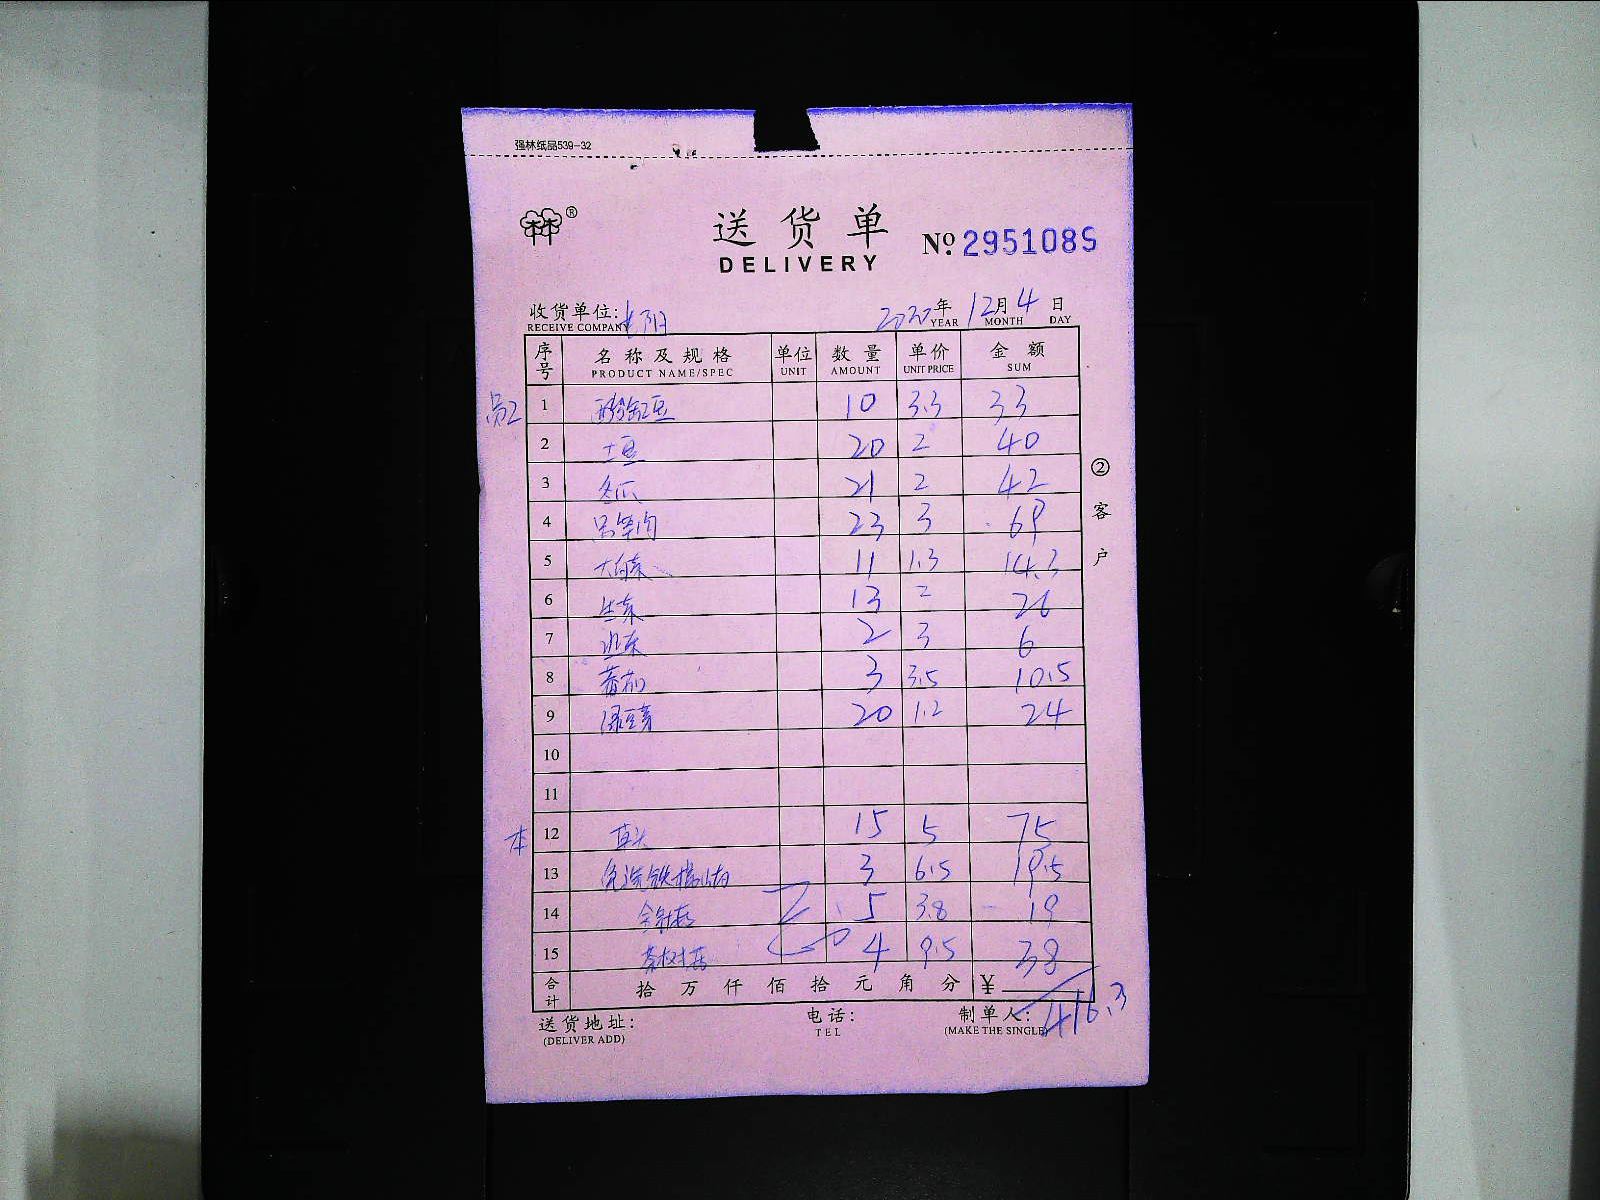 强林纸品539-32
林®
送货单 No. 2951089
DELIVERY
收货单位: 2020年12月4日
RECEIVE COMPANY YEAR MONTH DAY
序号 名称及规格 单位 数量 单价 金额
PRODUCT NAME/SPEC UNIT AMOUNT UNIT PRICE SUM
员工 1 酸缸豆 10 3.3 33
2 土豆 20 2 40
3 冬瓜 21 2 42
4 23 3 69
5 大白菜 11 1.3 14.3
6 生菜 13 2 26
7 2 3 6
8 番茄 3 3.5 10.5
9 绿豆芽 20 1.2 24
10
11
本 12 15 5 75
13 3 6.5 19.5
14 5 3.8 19
15 茶树菇 4 9.5 38
合计 拾 万 仟 佰 拾 元 角 分 ¥ 416.3
② 客户
送货地址: 电话: 制单人:
(DELIVER ADD) TEL (MAKE THE SINGLE)